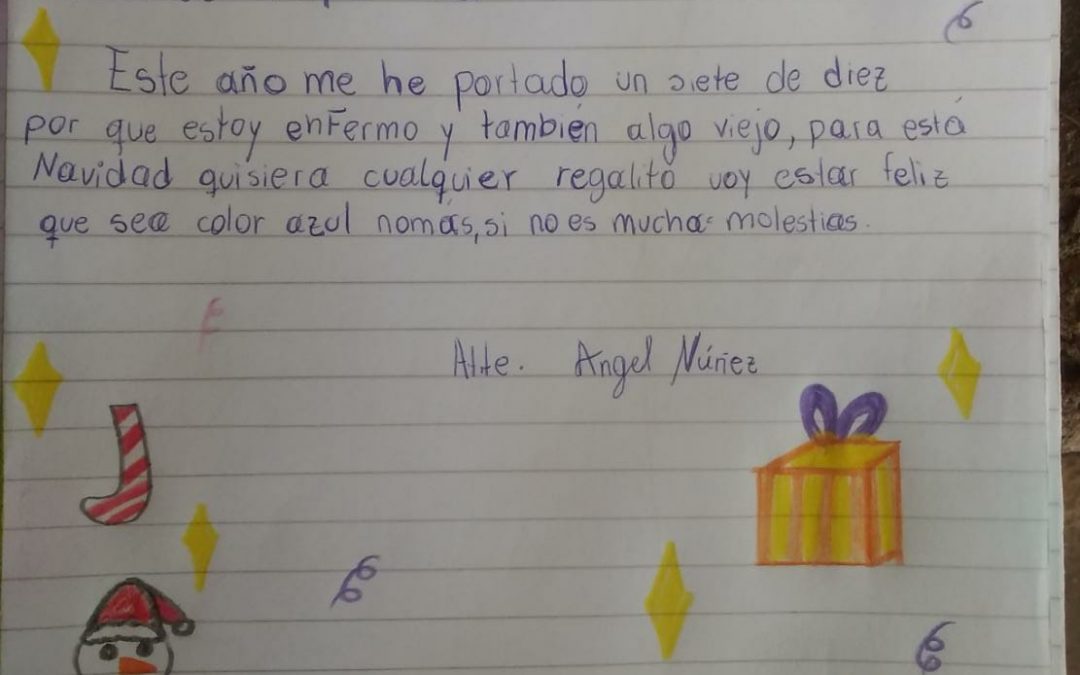 Este año me he portado un siete de diez
por que estoy enfermo y también algo viejo, para esta
Navidad quisiera cualquier regalito voy estar feliz
que sea color azul nomás, si no es muchas molestias.
Atte. Angel Núñez